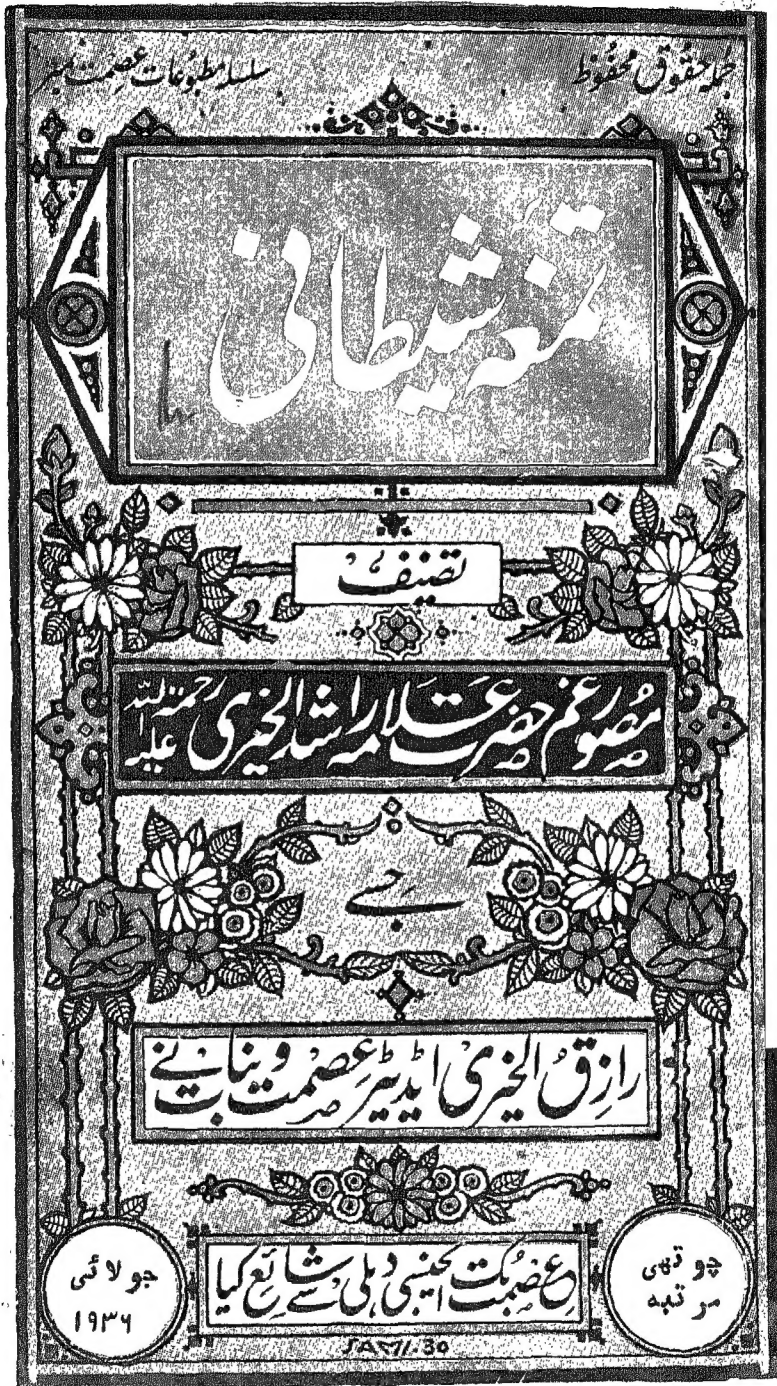 جملہ حقوق محفوظ
سلسلہ مطبوعات عصمت نمبر
تمغۂ شیطانی
تصنیف
مصور غم حضرت علامہ راشد الخیری رحمتہ اللہ علیہ
جسے
رازق الخیری ایڈیٹر عصمت و بنات نے
عصمت بک ایجنسی دہلی سے شائع کیا
چوتھی
مرتبہ
جولائی
۱۹۳۶
SAMI.30